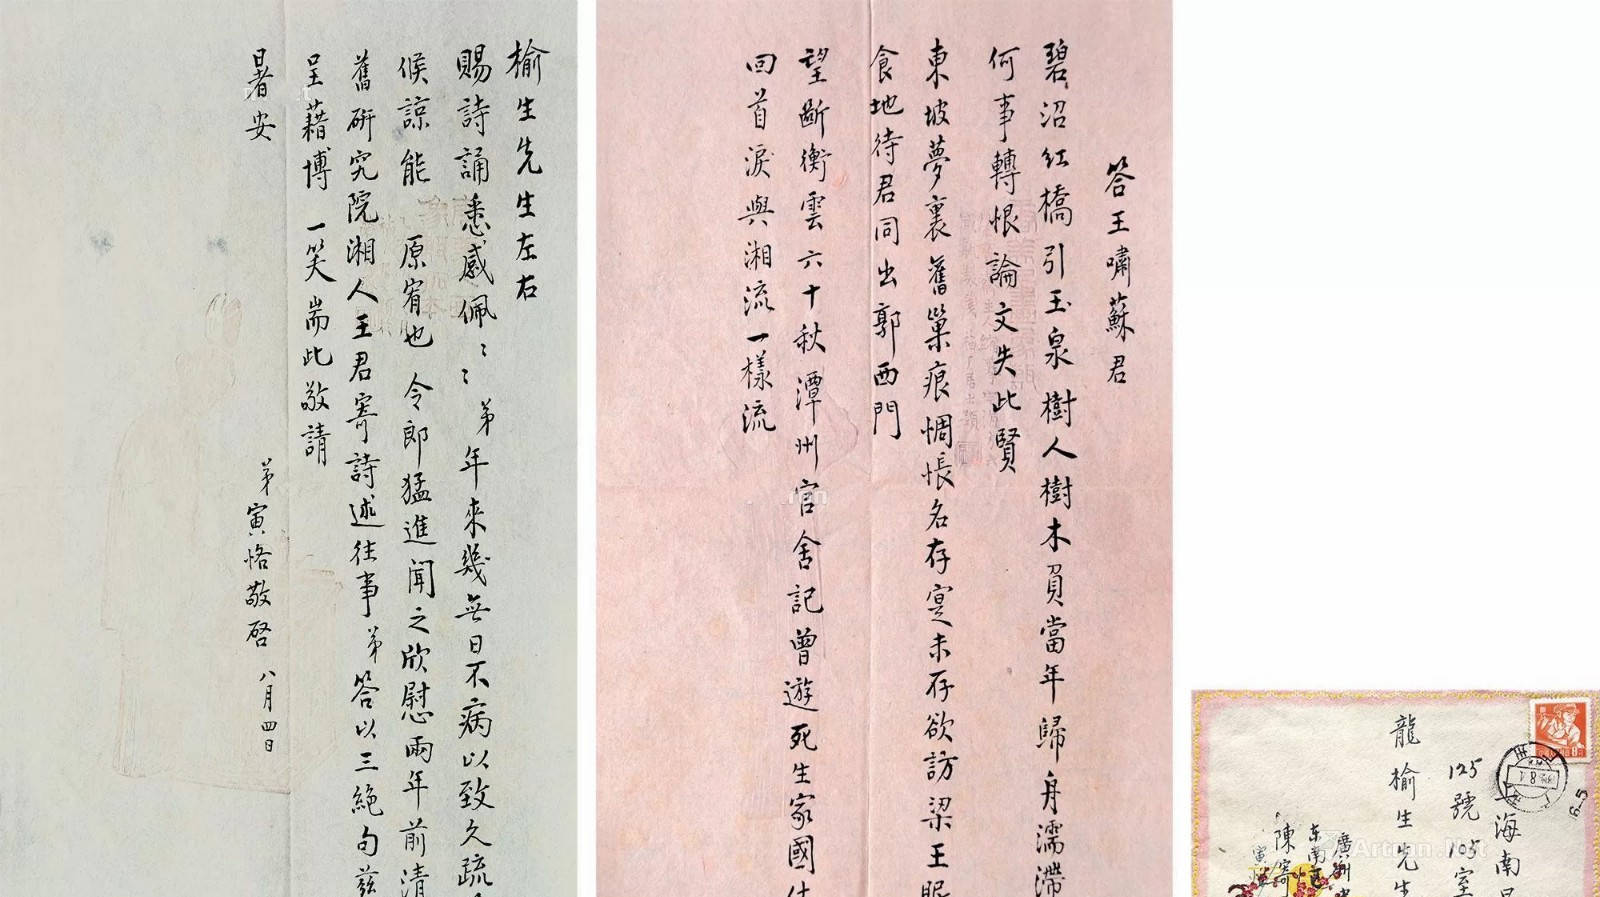 榆生先生左右
賜詩誦悉感佩〻〻弟年來幾無日不病以致久疏
候諒能原宥也令郎猛進聞之欣慰兩年前清
舊研究院湘人王君寄詩述往事弟答以三絕句茲
呈藉博一笑耑此敬請
暑安
弟寅恪敬啓 八月四日
答王嘯蘇君
碧沼紅橋引玉泉樹人樹木負當年歸舟濡滯
何事轉恨論文失此賢
東坡夢裏舊巢痕惆悵名存寔未存欲訪梁王眠
食地待君同出郭西門
望斷衡雲六十秋潭州官舍記曾遊死生家國
回首淚與湘流一樣流
海南
125號105室
龍榆生先生
廣州
东南区
陳寄
寅恪
6-5
Artron.Net